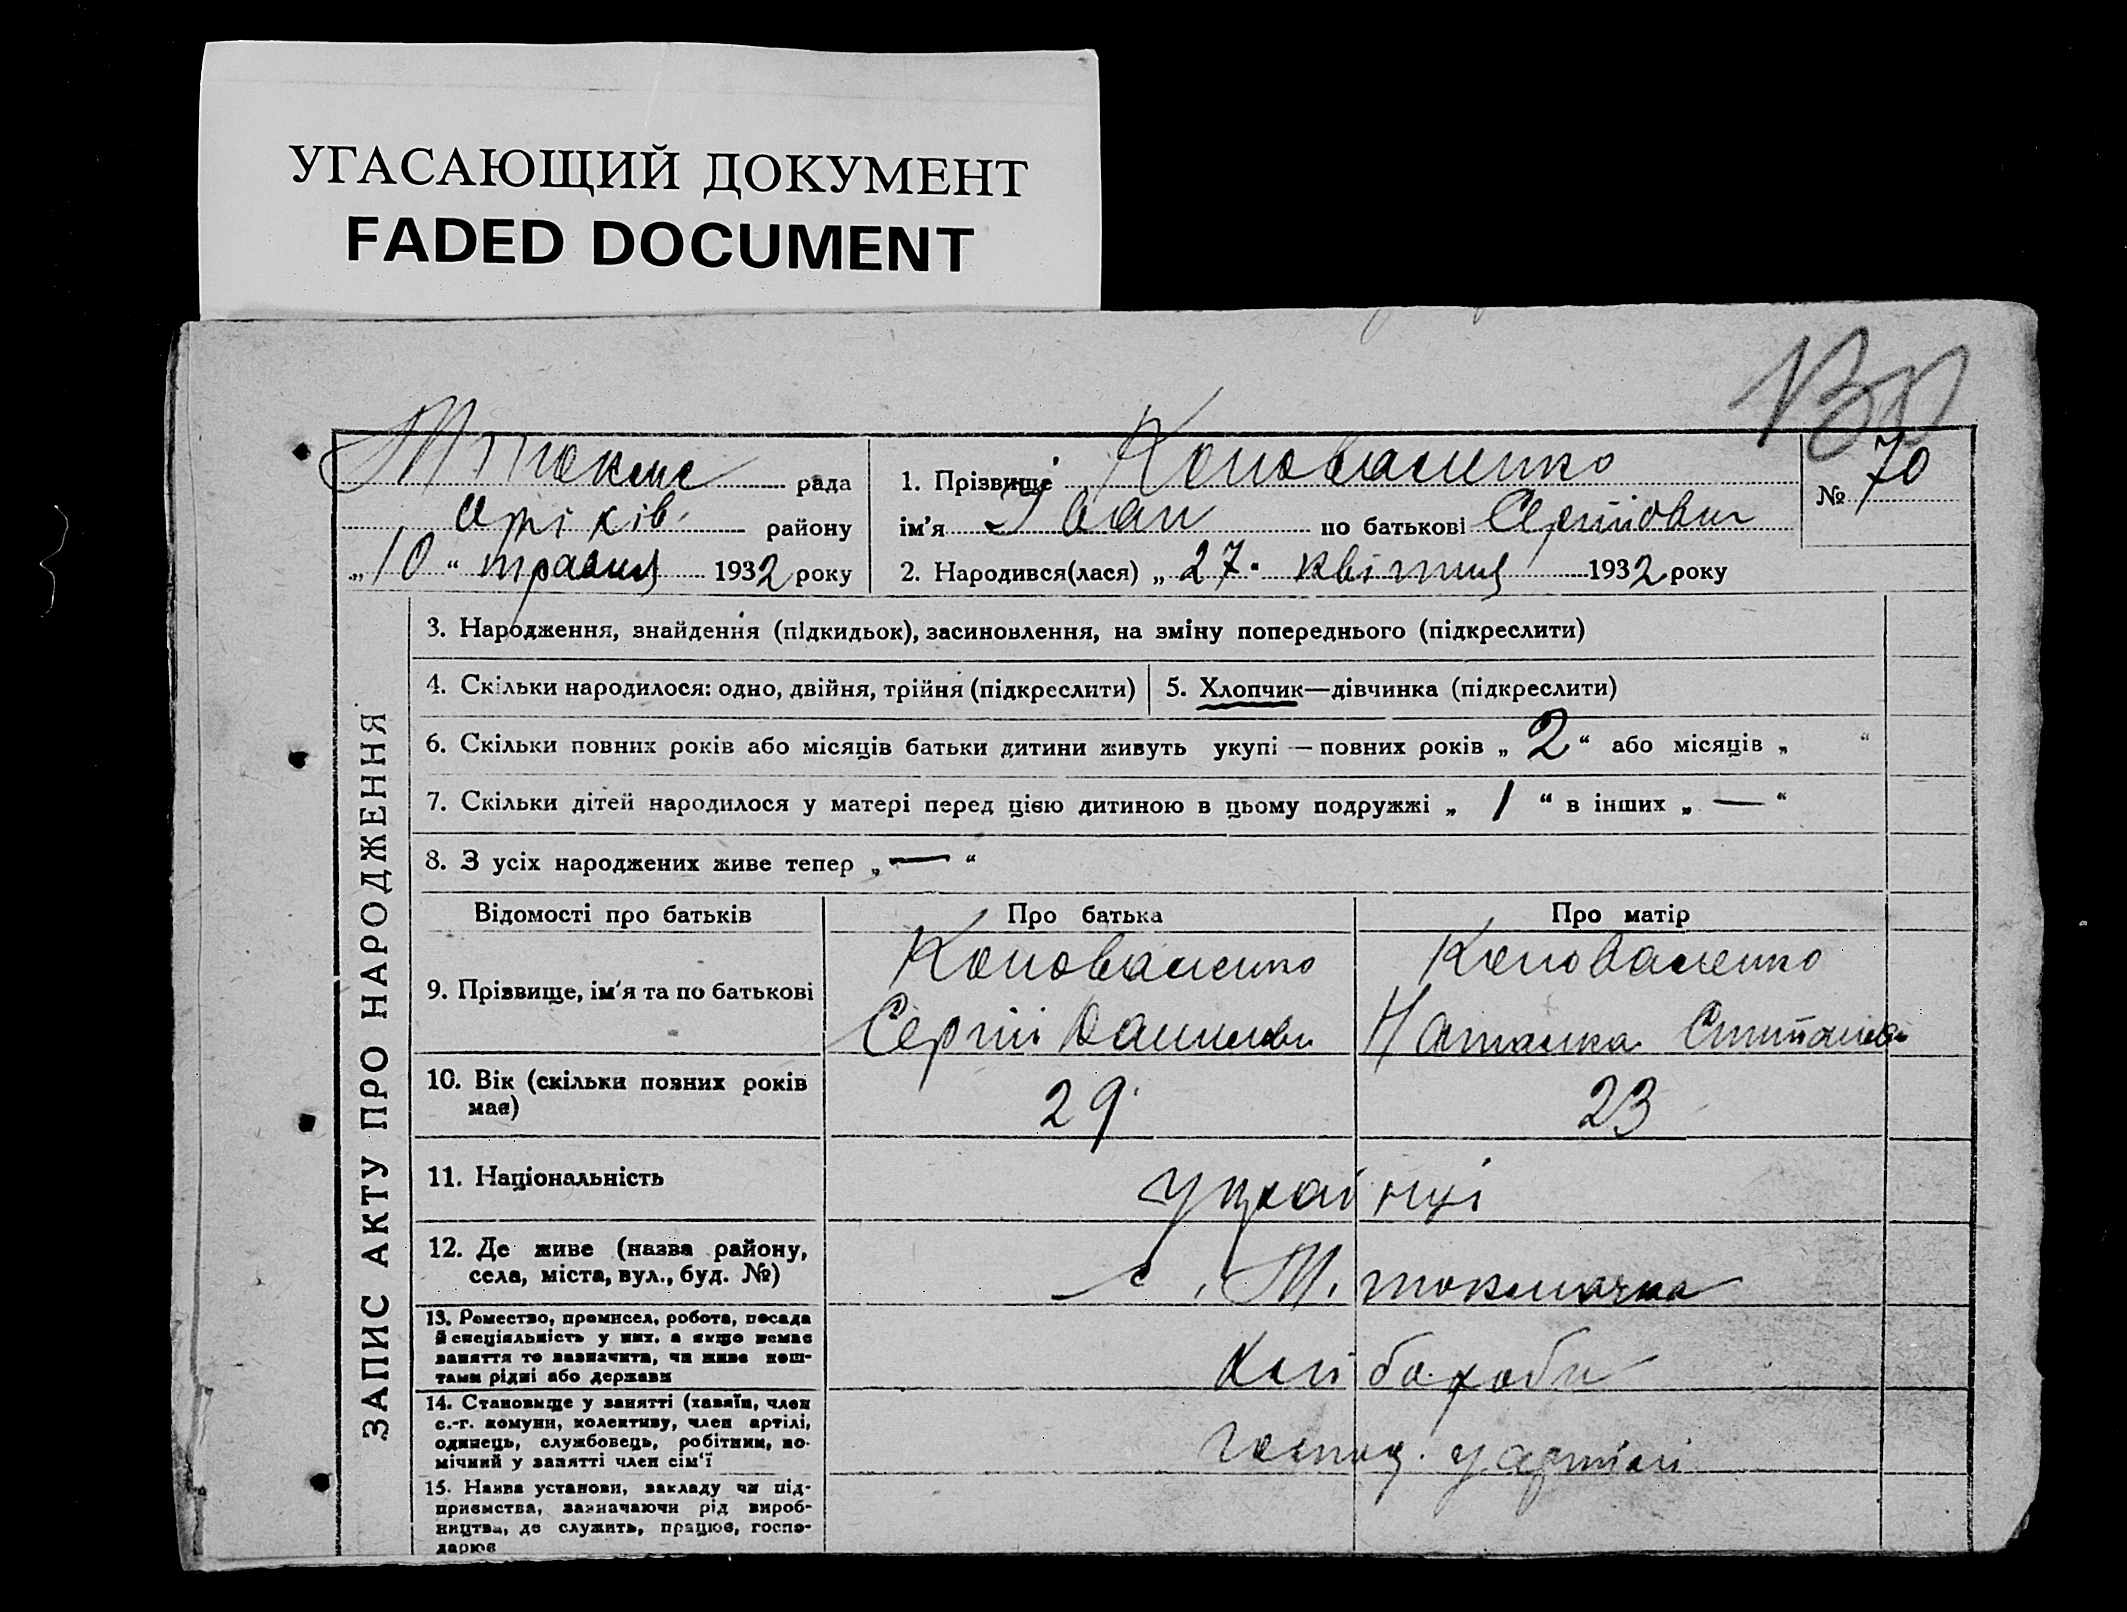 УГАСАЮЩИЙ ДОКУМЕНТ
FADED DOCUMENT
130
М Токмк рада
Оріхів. району
„10“ травня 1932 року
1. Прізвище Коноваленко
ім’я Іван по батькові Сергійович
№ 70
2. Народився(лася) „27“ квітня 1932 року
ЗАПИС АКТУ ПРО НАРОДЖЕННЯ
3. Народження, знайдення (підкидьок), засиновлення, на зміну попереднього (підкреслити)
4. Скільки народилося: одно, двійня, трійня (підкреслити)
5. Хлопчик—дівчинка (підкреслити)
6. Скільки повних років або місяців батьки дитини живуть укупі — повних років „2“ або місяців „ “
7. Скільки дітей народилося у матері перед цією дитиною в цьому подружжі „1“ в інших „—“
8. З усіх народжених живе тепер „—“
Відомості про батьків Про батька Про матір
9. Прізвище, ім’я та по батькові
Коноваленко
Сергій Данилови
Коноваленко
Наталка
10. Вік (скільки повних років
має)
29
23
11. Національність
Українці
12. Де живе (назва району,
села, міста, вул., буд. №)
с. М. токмачка
13. Ремество, промисел, робота, посада
й спеціяльність у них, а якщо немає
заняття то зазначити, чи живе кош-
тами рідні або держави
Хлібороби
14. Становище у занятті (хазяїн, член
с.-г. комуни, колективу, член артілі,
одинець, службовець, робітник, по-
мічний у занятті член сім’ї
господ. у артілі
15. Назва установи, закладу чи під-
приємства, зазначаючи рід вироб-
ництва, де служить, працює, госпо-
дарює